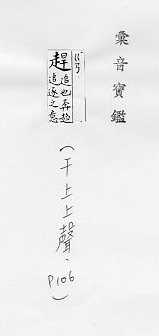 彙音寶鑑
趕
追也奔
追逐之意
(干上上聲, P106)